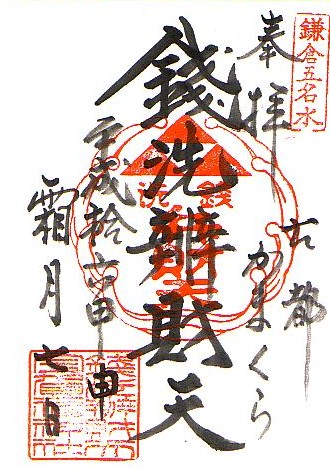 鎌倉五名水
奉拝
古都
かまくら
銭洗辨財天
銭洗
平成拾六甲申
霜月七日